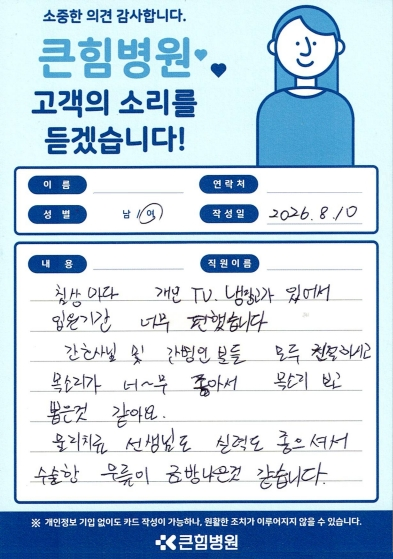 소중한 의견 감사합니다.
큰힘병원
고객의 소리를
듣겠습니다!
이 름
연락처
성 별 남 / 여
작성일 2026.8.10
내 용
직원이름
침상 마다 개인 TV. 냉장고가 있어서
입원기간 너무 편했습니다
간호사님 및 간병인분들 모두 친절하시고
목소리가 너~무 좋아서 목소리 보고
뽑은것 같아요.
물리치료 선생님도 실력도 좋으셔서
수술한 무릎이 금방나은것 같습니다.
※ 개인정보 기입 없이도 카드 작성이 가능하나, 원활한 조치가 이루어지지 않을 수 있습니다.
큰힘병원